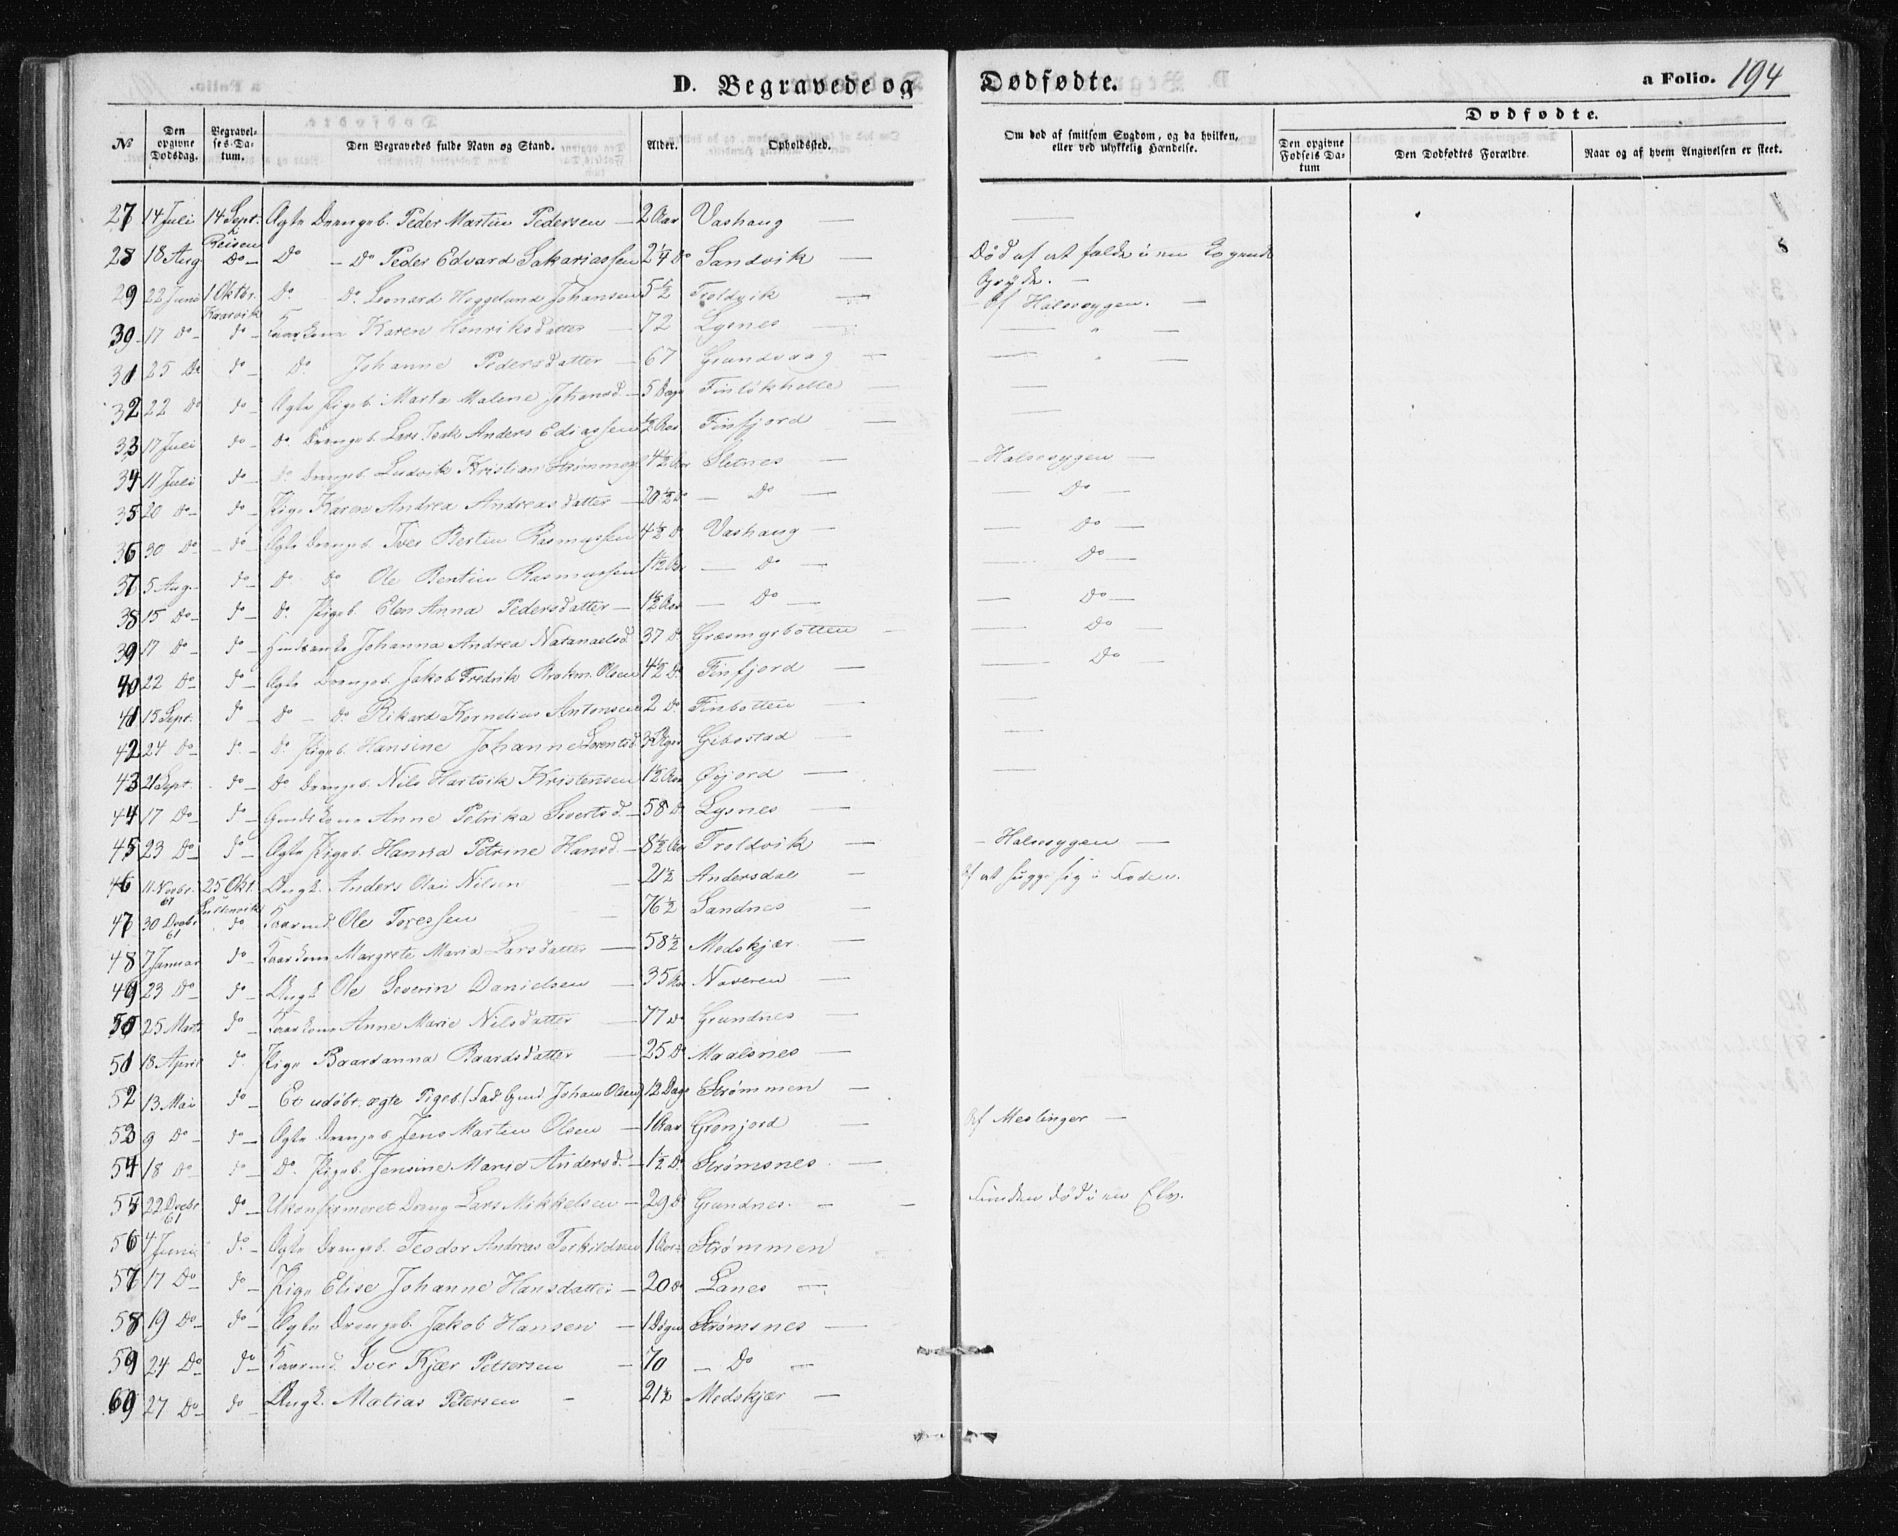 D. Begravede og Dødfødte. a Folio. 194
Dødfødte.
No Den opgivne Dødsdag. Begravelses-Datum. Den Begravedes fulde Navn og Stand. Alder. Opholdssted. Om død af smitsom Sygdom, og da hvilken, eller ved ulykkelig Hændelse. Den opgivne Fødsels Datum Den Dødfødtes Forældre. Naar og af hvem Angivelsen er skeet.
27 14 Juli 14 Sept. Ægte Drengeb. Peder Martin Pedersen — 2 Aar Vashaug —
Reisen
28 18 Aug Do — Do — Do Peder Edvard Sakariassen 2¼ Do Sandvik — Død af at falde i en kogende
Gryde. —
29 22 Juni 1 Oktbr. Do Do Leonard Heggelund Johansen 5½ Troldvik — Af Halssygen. —
Kaarvik
39 17 Do do Kaarkone Karen Henriksdatter — 72 Lysnes —
31 25 Do do — Do Johanne Pedersdatter — 67 Grundvaag —
32 22 Do do — Ægte Pigeb. Marta Malene Johansd. — 5 Dage —
33 17 Juli do — Do Drengeb. Lars Isak Anders Ediassen ½ Aar Finfjord —
34 11 Juli do — Do Drengeb. Ludvik Kristian 4½ Aar Sletnes — — Halssygen —
35 20 Do — do — Pige Karen Andrea Andreasdatter — 20½ Do — Do — — Do —
36 30 Do — do — Ægte Drengeb. Iver Bertin Rasmussen 4½ D. Vashaug — — Do —
37 5 Aug. do — Do Do Ole Bentin Rasmussen 1½ Aar — Do — Do —
38 15 Do — do — Do Pigeb. Elen Anna Pedersdatter — 1½ Aar — Do — — Do —
39 17 Do do — Johanna Andrea Natanaelsd. 37 D. Græsmyrbotten — — Do —
40 22 Do — do — Ægte Drengeb. Jakob Fredrik Olsen 4½ D. Finfjord — — Do
41 15 Sept. do — Do — Do Rikard Kornelius Antonsen 2 Do Finbotten —
42 24 Do do — Do Pigeb. Hansine Johanne Lorentsd. Gibostad —
43 21 Sept. do — Do Drengeb. Nils Hartvik Kristensen 1½ Aar Øijord —
44 17 Do do — Anne Petrika Sivertsd. — 58 D Lysnes —
45 23 Do — do — Ægte Pigeb. Hanna Petrine Hansd. — 8½ Aar Troldvik — — Halssygen —
46 11 Novbr. 61 25 Okt. Ungk. Anders Olai Nilsen — 21½ Andersdal — Af at hugge sig i Foden.
47 30 Decbr 61 do Kaarmd. Ole Toressen 76½ Sandnes —
48 7 Januar do — Kaarkone Margrete Maria Larsdatter — 58½ Medskjær. —
49 23 Do — do — Ungk. Ole Severin Danielsen — 35 Aar Naveren —
50 25 Marts do — Kaarkone Anne Marie Nilsdatter — 77 Do Grundnes —
51 18 April do. Pige Baardanna Baardsdatter — 25 D Maalsnes —
52 13 Mai do — Et udøbt ægte Pigeb. (Fad. Johan Olsen) 12 Dage Strømmen —
53 9 Do — do — Ægte Drengeb. Jens Martin Olsen — 1 Aar Grønjord — Af Meslinger —
54 18 Do — do — Do. Pigeb. Jensine Marie Andersd. — 1½ D. Strømsnes. —
55 22 Decbr 61 do — Ukonfirmeret Dreng Lars Mikkelsen — 29 D Grundnes. — — Funden død i en Elv.
56 4 Juni do — Ægte Drengeb. Teodor Andreas Torkildsen 1 Aar Strømmen
57 17 Do — do — Pige Elise Johanne Hansdatter — 20 D Lanes —
58 19 Do — do — Ægte Drengeb. Jakob Hansen — 1 Døgn Strømsnes —
59 24 Do do — Kaarmd. Iver Kjær Pettersen — 70 — Do —
69 27 Do — do — Ungk. Matias Petersen — 21½ Medskjær —